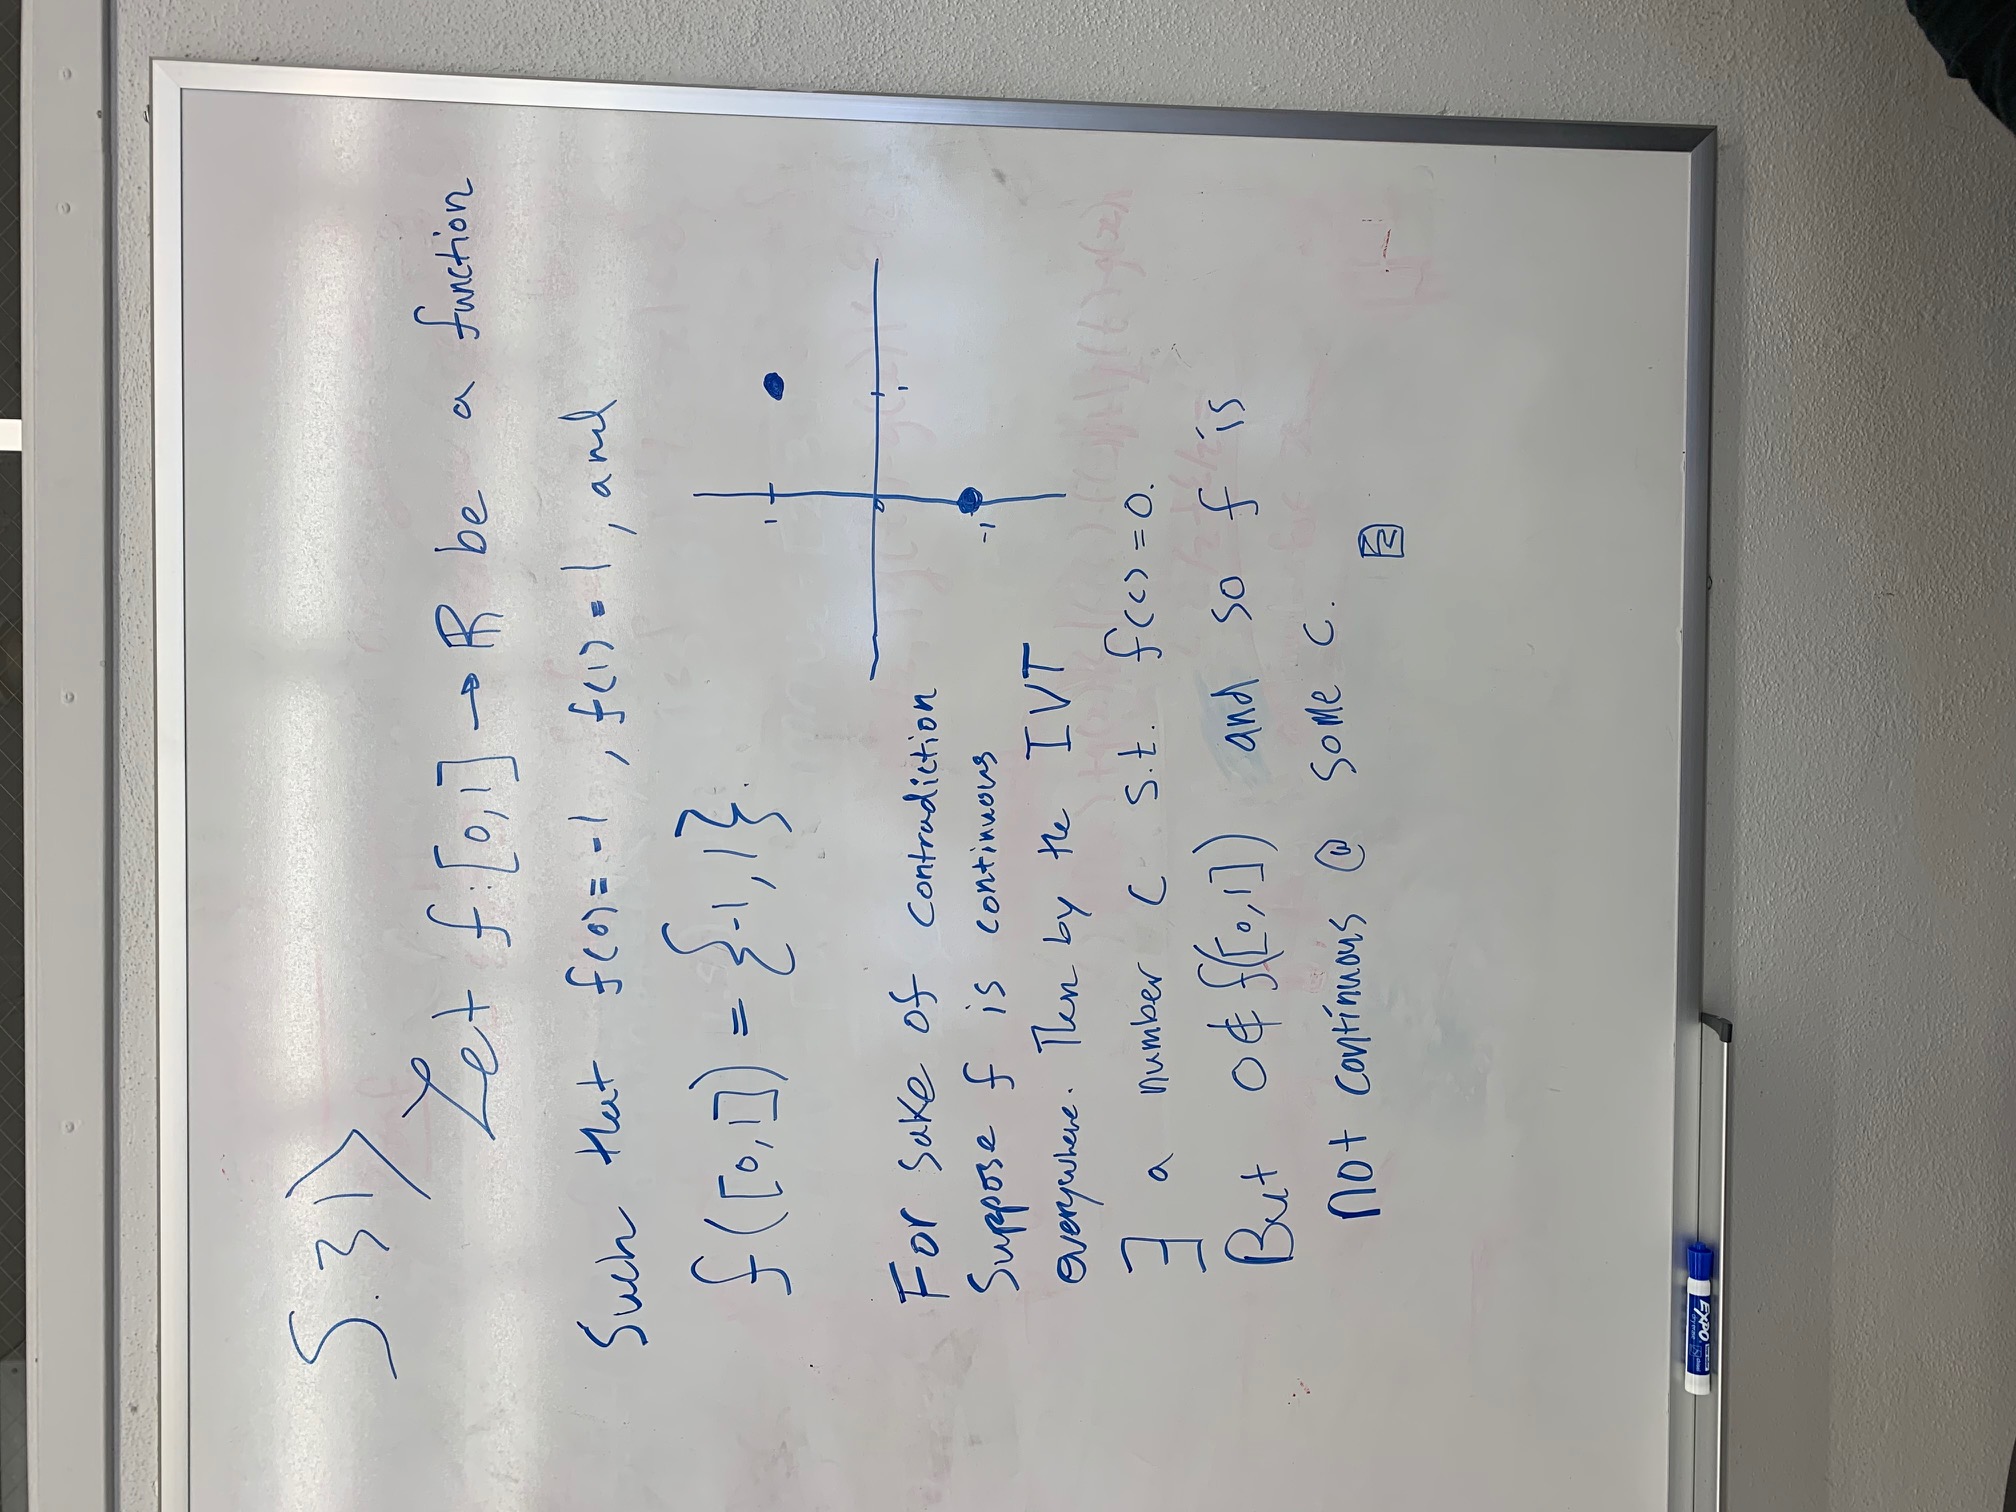 5.31>
Let f:[0,1] → ℝ be a function
Such that f(0) = -1, f(1) = 1, and
f([0,1]) = {-1,1}.
1
0
1
-1
For sake of contradiction
Suppose f is continuous
everywhere. Then by the IVT
∃ a number c s.t. f(c) = 0.
But 0 ∉ f([0,1]) and so f is
not continuous @ some c.
EXPO